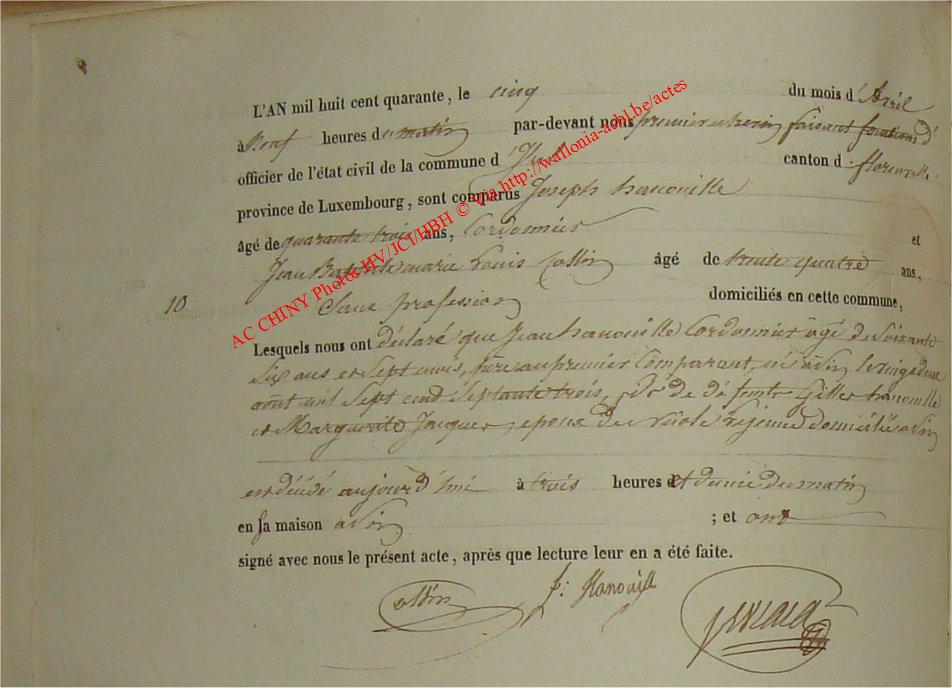 L'AN mil huit cent quarante, le cinq du mois d'Avril
à Neuf heures du matin par-devant nous premier echevin faisant fonctions d'
officier de l'état civil de la commune d' canton d. florenville.
province de Luxembourg, sont comparus Joseph hanouille
âgé de quarante trois ans, Cordonnier et
Jean Baptiste marie Louis Collin âgé de trente quatre ans,
10 Sans profession domiciliés en cette commune,
Lesquels nous ont déclaré que Jean hanouille Cordonnier âgé de Soixante
Six ans et Sept mois, père au premier Comparant, né a le vingt deux
aout mil Sept cent Septante trois, fils de défunts Gilles hanouille
et Marguerite Jacques, epoux de rejeune domicilié a
est décédé aujourd'hui à trois heures et demie du matin
en sa maison a ; et ont
signé avec nous le présent acte, après que lecture leur en a été faite.
Collin J: Hanouille
AC CHINY Photos HV/JCI/HBH © Via http://wallonia-asbl.be/actes